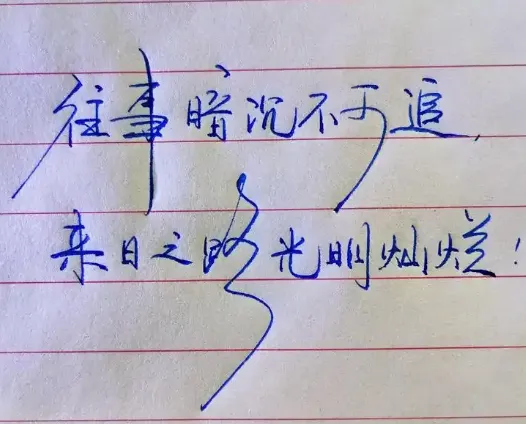 往事暗沉不可追,
来日之路光明灿烂!